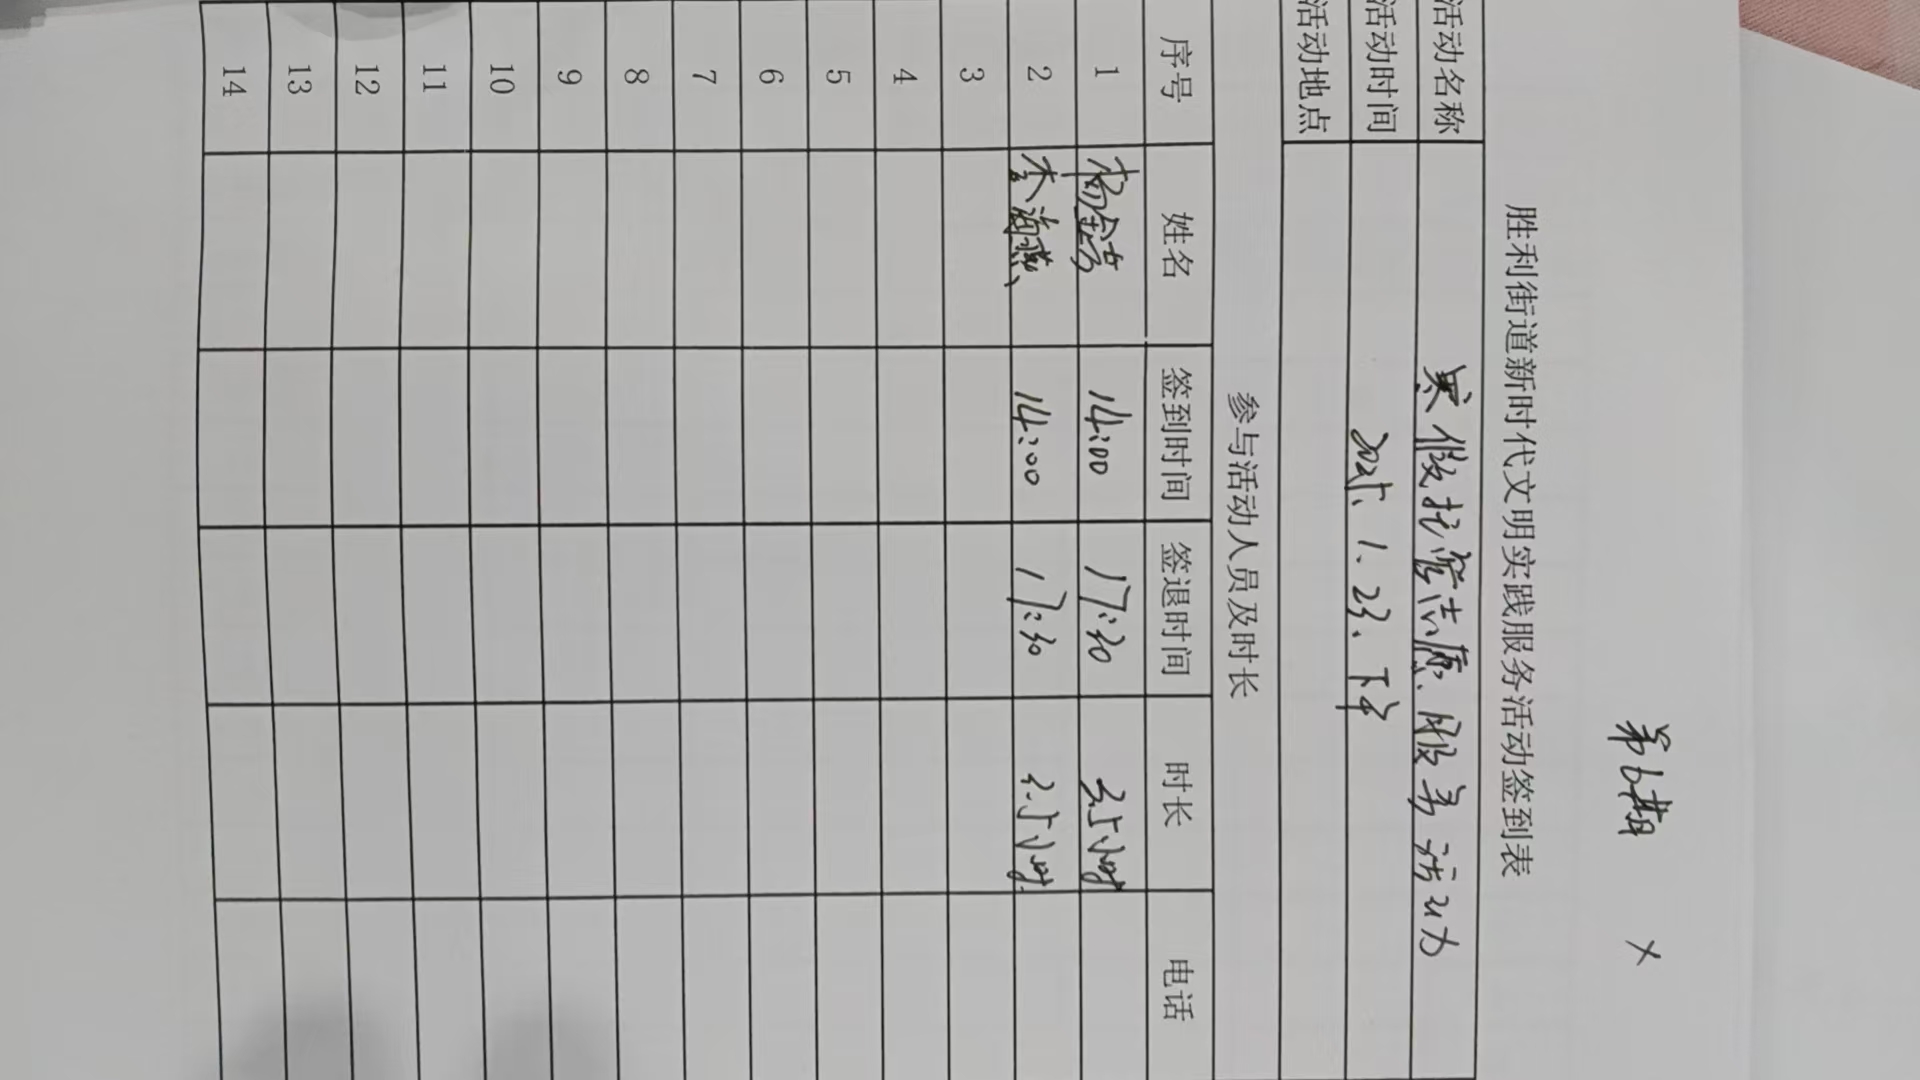 第6期 ×
胜利街道新时代文明实践服务活动签到表
活动名称 寒假托管志愿服务活动
活动时间 2025.1.23.下午
活动地点
参与活动人员及时长
序号 姓名 签到时间 签退时间 时长 电话
1 14:00 17:30 3.5小时
2 李海燕 14:00 17:30 3.5小时
3
4
5
6
7
8
9
10
11
12
13
14